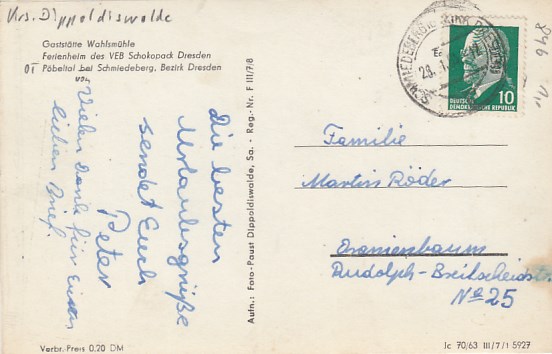 Krs. Dippoldiswalde
Gaststätte Wahlsmühle
Ferienheim des VEB Schokopack Dresden
OT Pöbeltal bei Schmiedeberg, Bezirk Dresden
von
Die besten
Urlaubsgrüße
sendet Euch
Peter
Vielen Dank für Euren
lieben Brief.
Aufn.: Foto-Paust Dippoldiswalde, Sa. · Reg.-Nr. F III/7/8
Verbr.-Preis 0,20 DM
SCHMIEDEBERG
28.1
DEUTSCHE
DEMOKRATISCHE REPUBLIK
10
Familie
Martin Röder
Oranienbaum
Rudolph-Breitscheidstr.
No 25
Jc 70/63 III/7/1 5927